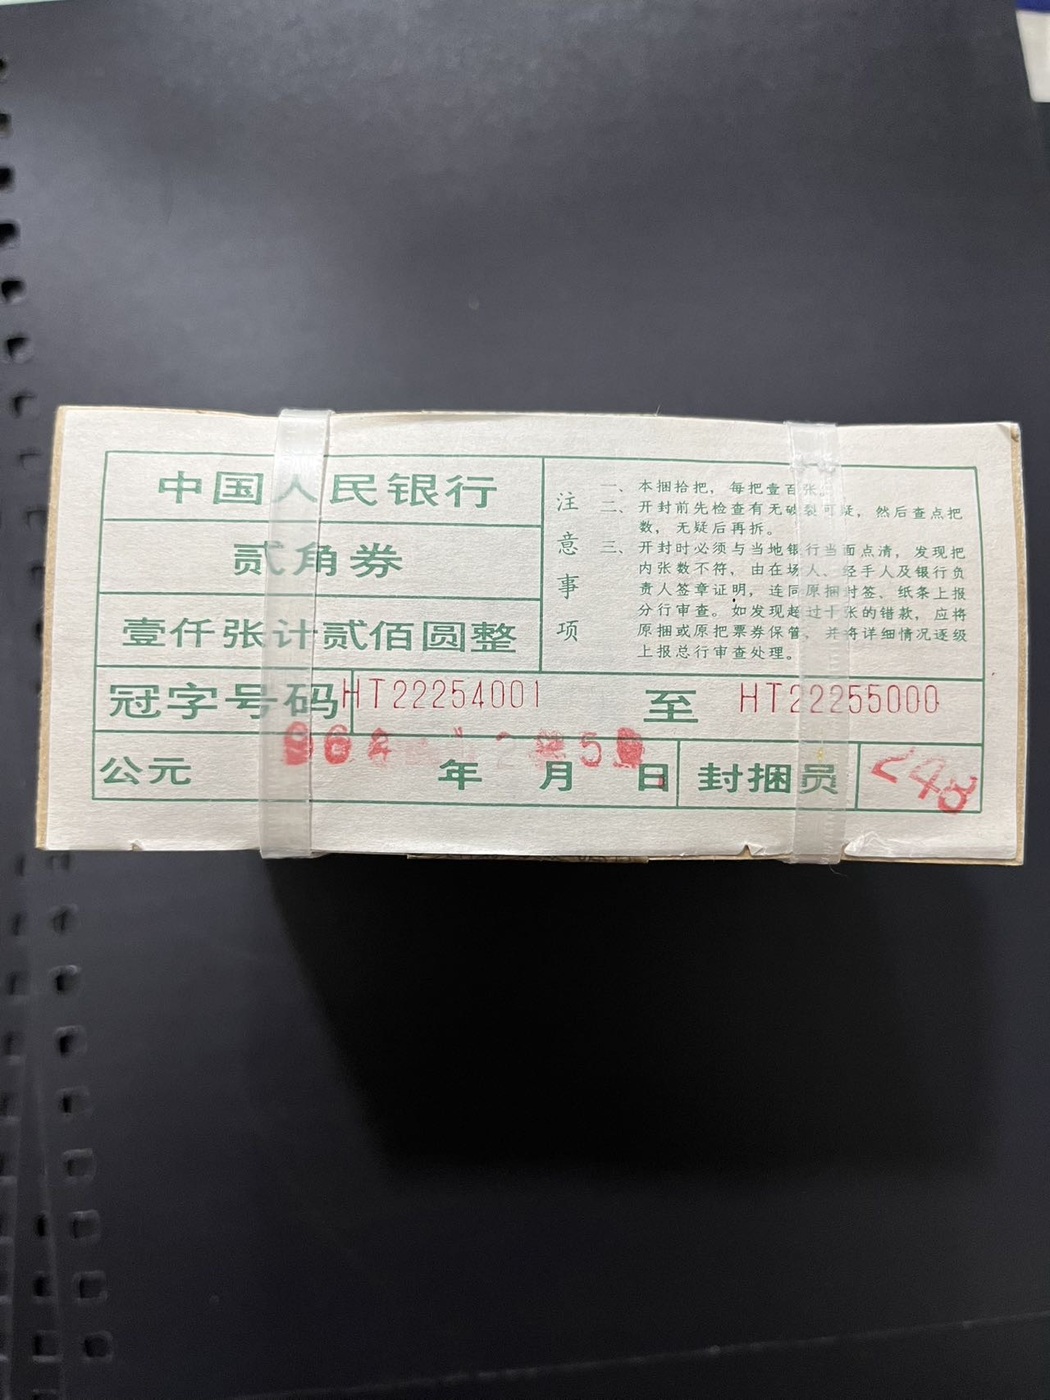 中国人民银行
贰角券
壹仟张计贰佰圆整
注意事项
一、本捆拾把，每把壹百张。
二、开封前先检查有无破裂可疑，然后查点把
数，无疑后再拆。
三、开封时必须与当地银行当面点清，发现把
内张数不符，由在场人、经手人及银行负
责人签章证明，连同原捆封签、纸条上报
分行审查。如发现超过十张的错款，应将
原捆或原把票券保管，并将详细情况逐级
上报总行审查处理。
冠字号码 HT22254001 至 HT22255000
公元 年 月 日 封捆员 248